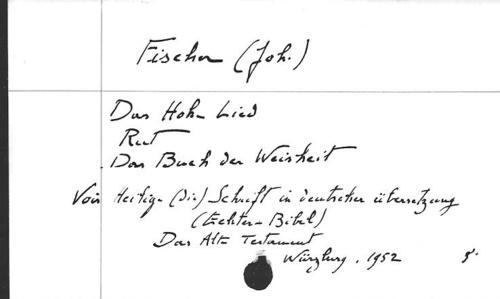 Fischer (Joh.)
Das Hohe Lied
Rut
Das Buch der Weisheit
Voir Heilige (Die) Schrift in deutscher übersetzung
(Echter-Bibel)
Das Alte Testament
Würzburg, 1952 8°